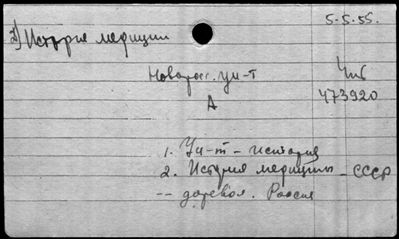 5-5-55.
2) История медицин
Новоросс. ун-т
Чиб
473920
А
1. Ун-т - история
2. История медицины - СССР
-- доревол. Россия